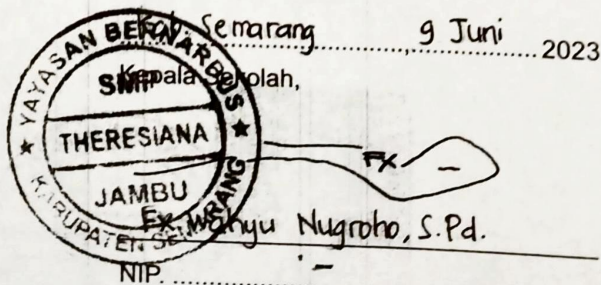 Kab. Semarang, 9 Juni 2023
Kepala Sekolah,
YAYASAN BERNARDUS
SMP
THERESIANA
JAMBU
KABUPATEN SEMARANG
FX
Fx. Wahyu Nugroho, S.Pd.
NIP. -